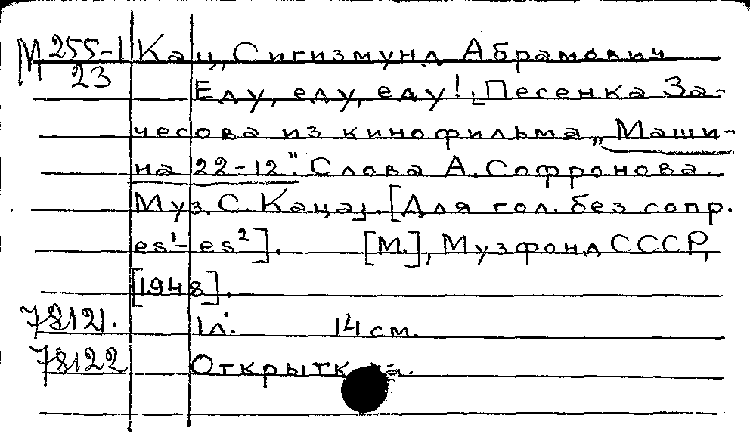 М 255-1 Кац, Сигизмунд Абрамович
23
Еду, еду, еду! [Песенка За-
чесова из кинофильма „Маши-
на 22-12“. Слова А. Софронова.
Муз. С. Каца]. [Для гол. без сопр.
es¹-es²]. [М.], Музфонд СССР,
[1948].
78121. 1 л. 14 см.
78122 Открытка.